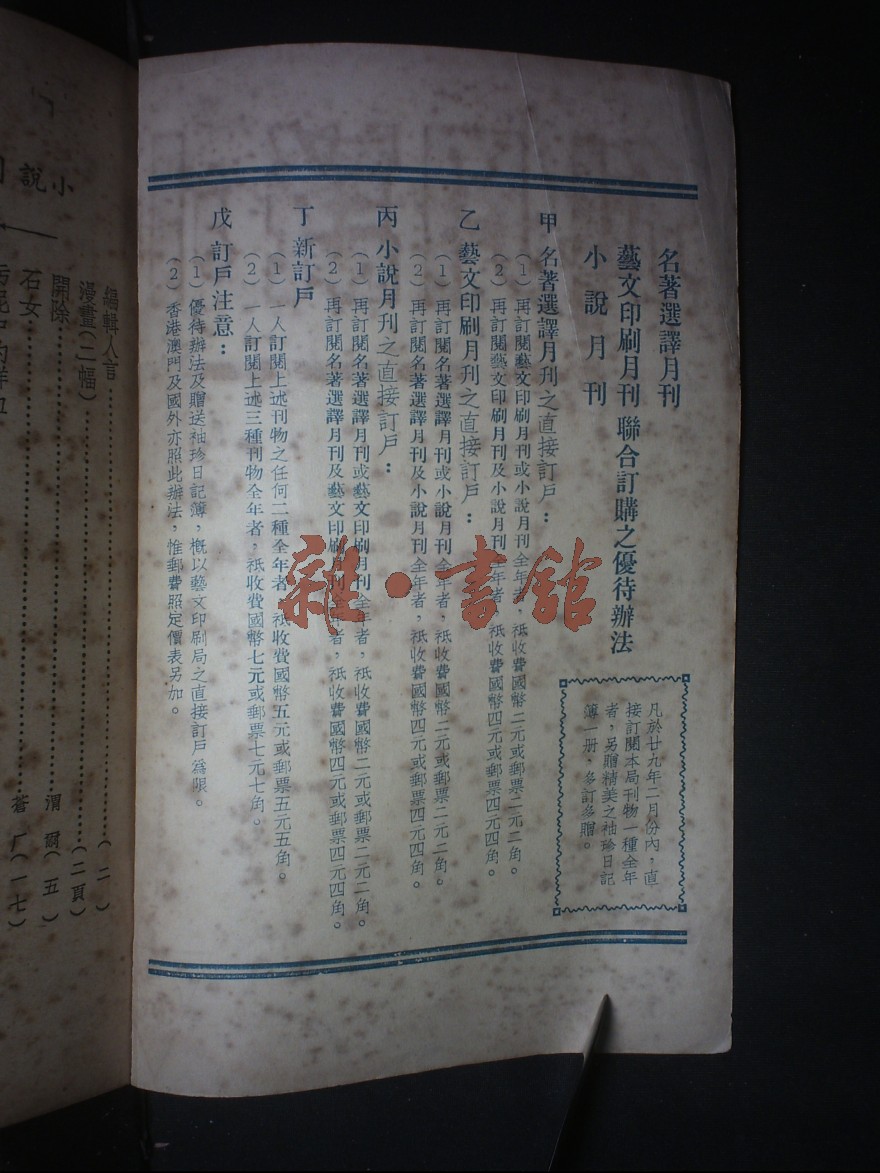 名著選譯月刊
藝文印刷月刊 聯合訂購之優待辦法
小說月刊
凡於廿九年二月份內，直
接訂閱本局刊物一種全年
者，另贈精美之袖珍日記
簿一册，多訂多贈。
甲 名著選譯月刊之直接訂戶：
（1）再訂閱藝文印刷月刊或小說月刊全年者，祇收費國幣二元或郵票二元二角。
（2）再訂閱藝文印刷月刊及小說月刊全年者，祇收費國幣四元或郵票四元四角。
乙 藝文印刷月刊之直接訂戶：
（1）再訂閱名著選譯月刊或小說月刊全年者，祇收費國幣二元或郵票二元二角。
（2）再訂閱名著選譯月刊及小說月刊全年者，祇收費國幣四元或郵票四元四角。
丙 小說月刊之直接訂戶：
（1）再訂閱名著選譯月刊或藝文印刷月刊全年者，祇收費國幣二元或郵票二元二角。
（2）再訂閱名著選譯月刊及藝文印刷月刊全年者，祇收費國幣四元或郵票四元四角。
丁 新訂戶
（1）一人訂閱上述刊物之任何二種全年者，祇收費國幣五元或郵票五元五角。
（2）一人訂閱上述三種刊物全年者，祇收費國幣七元或郵票七元七角。
戊 訂戶注意：
（1）優待辦法及贈送袖珍日記簿，概以藝文印刷局之直接訂戶爲限。
（2）香港澳門及國外亦照此辦法，惟郵費照定價表另加。
雜·書館
小說
編輯人言……（二）
漫畫（二幅）……（二頁）
開除……渭爾（五）
石女……蒼厂（一七）